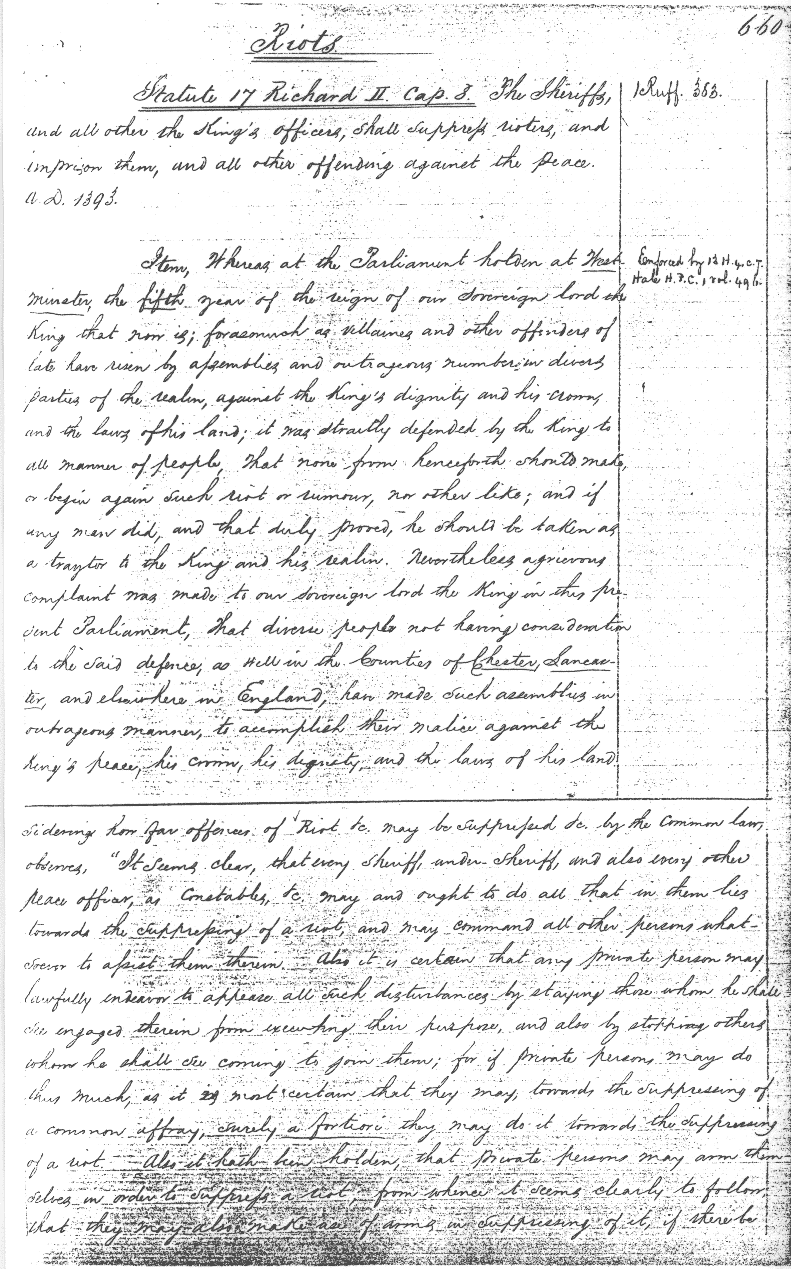 660
Riots
Statute 17 Richard II. Cap. 8. The Sheriffs,
1 Ruff. 383.
and all other the King's officers, shall suppress rioters, and
imprison them, and all other offending against the peace.
A.D. 1393.
Item, Whereas at the Parliament holden at West-
Enforced by 13 H. 4. c. 7.
Hale H. P. C. 1 vol. 496.
minster, the fifth year of the reign of our sovereign lord the
King that now is; forasmuch as villaines and other offenders of
late have risen by assemblies and outrageous number in divers
parties of the realm, against the King's dignity and his crown,
and the laws of his land; it was straitly defended by the King to
all manner of people, That none from henceforth should make,
or begin again such riot or rumour, nor other like; and if
any man did, and that duly proved, he should be taken as
a traytor to the King and his realm. Nevertheless a grievous
complaint was made to our sovereign lord the King in this pre-
sent Parliament, That diverse people not having consideration
to the said defence, as well in the Counties of Chester, Lancas-
ter, and elsewhere in England, have made such assemblies in
outrageous manner, to accomplish their malice against the
King's peace, his crown, his dignity, and the laws of his land
sidering how far offences of Riot &c. may be suppressed &c. by the Common law,
observes, "It seems clear, that every Sheriff, under-Sheriff, and also every other
peace officer, as Constables, &c. may and ought to do all that in them lies
towards the suppressing of a riot, and may command all other persons what-
soever to assist them therein. Also it is certain that any private person may
lawfully endeavor to appease all such disturbances by staying those whom he shall
see engaged therein from executing their purpose, and also by stopping others
whom he shall see coming to join them; for if private persons may do
thus much, as it is most certain that they may, towards the suppressing of
a common affray, surely a fortiori they may do it towards the suppressing
of a riot. Also it hath been holden, that private persons may arm them-
selves in order to suppress a riot, from whence it seems clearly to follow,
that they may also make use of arms in suppressing of it, if there be